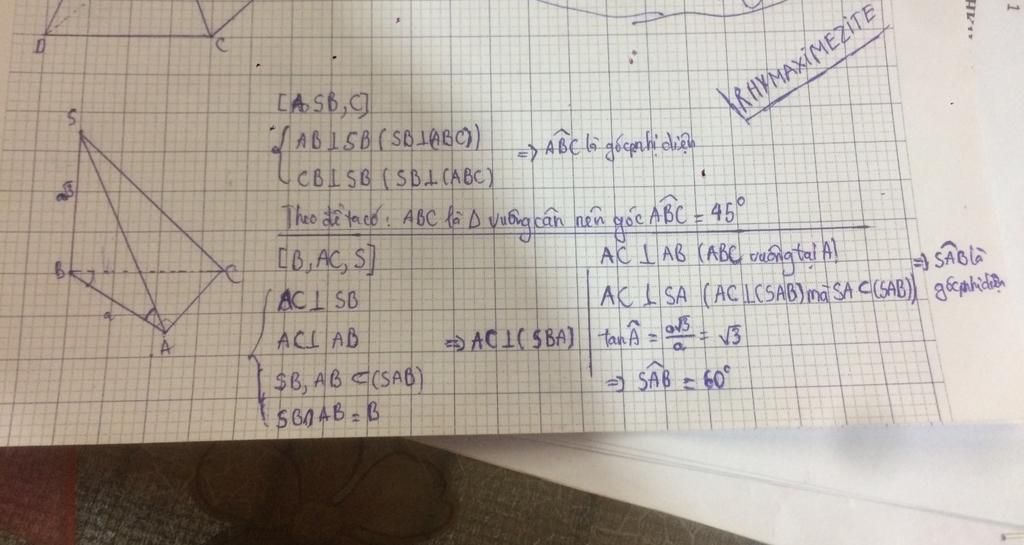 D
C
RHYMAXIMEZITE
S
B
C
a
A
[A SB, C]
AB⊥SB (SB⊥(ABC))
CB⊥SB (SB⊥(ABC)
=> ABĈ là góc phị diện
Theo đề ta có: ABC là Δ vuông cân nên góc ABĈ = 45°
[B, AC, S]
AC⊥SB
AC⊥AB
SB, AB ⊂ (SAB)
SB∩AB = B
=> AC⊥(SBA)
AC⊥AB (ABC vuông tại A)
AC⊥SA (AC⊥(SAB) mà SA⊂(SAB))
=> SÂB là
tan Â = a√3/a = √3
=> SÂB = 60°